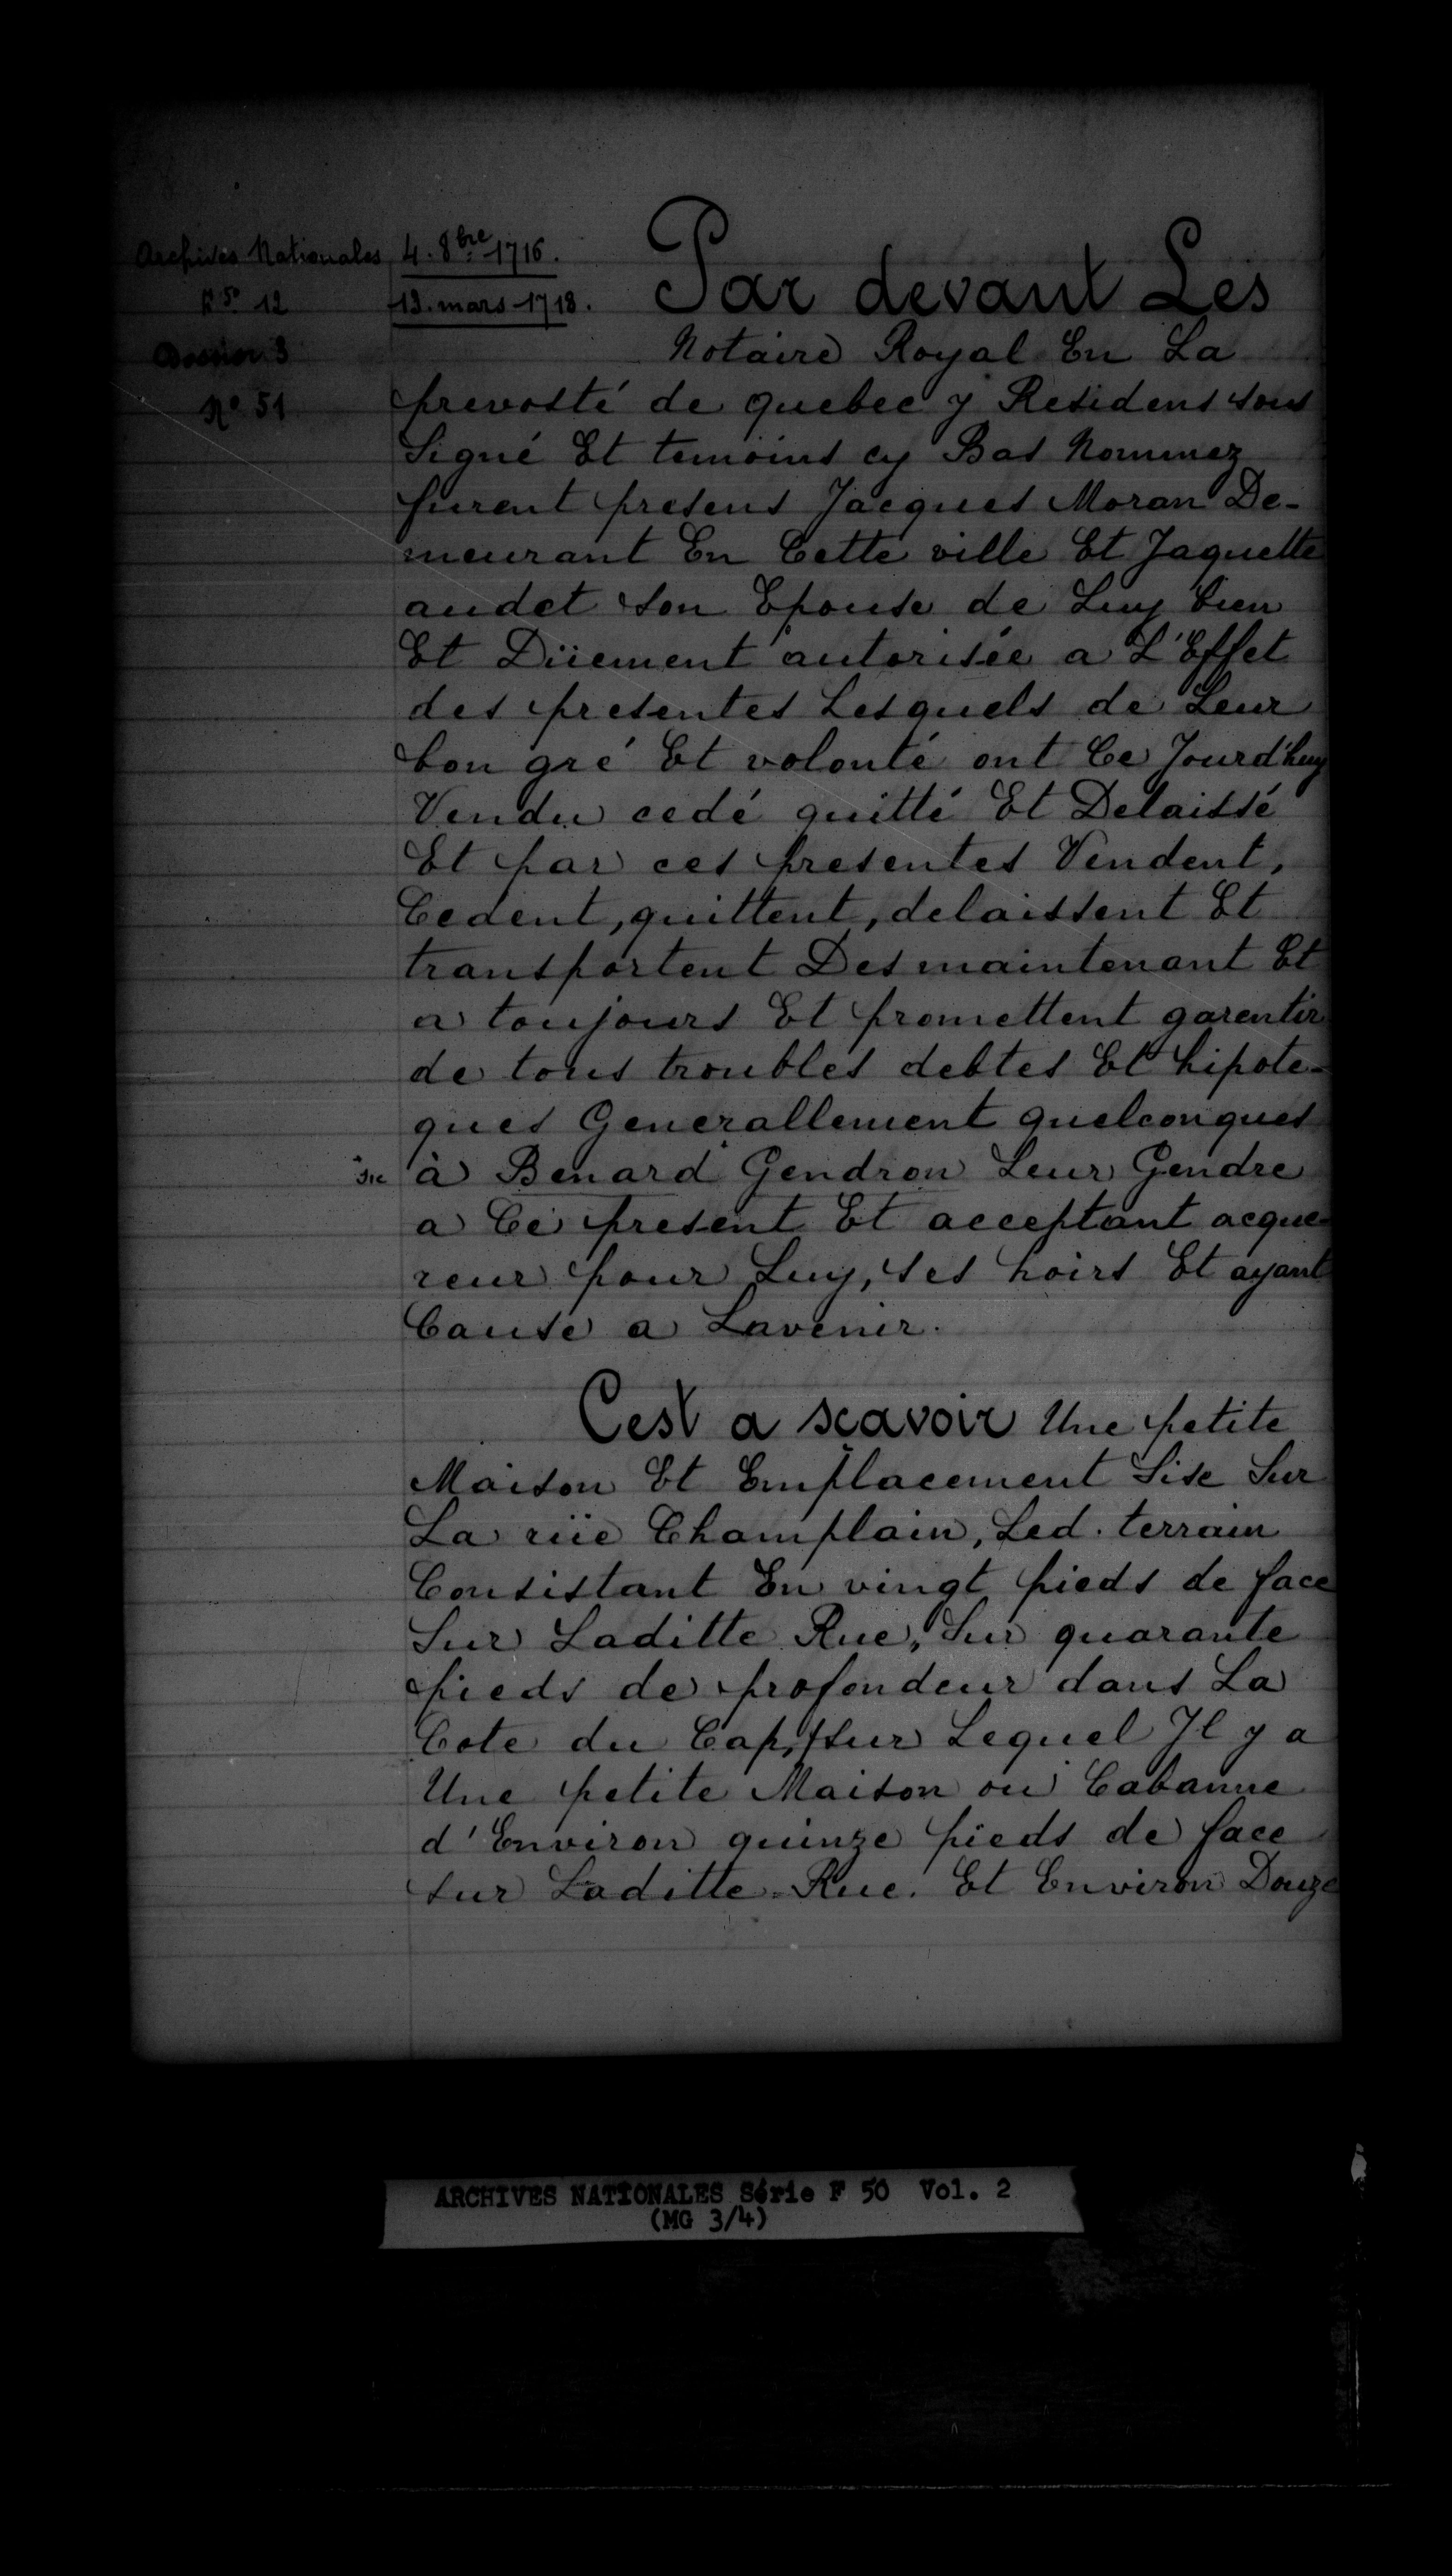 Archives Nationales
F 50 12
Dossier 3
Nº 51
4. 8bre 1716.
13. mars 1718.
Par devant Les
Notaire Royal En La
prevosté de quebec y Residens sous
Signé Et temoins cy Bas Nommez
furent presens Jacques Moran De-
meurant En Cette ville Et Jaquette
audet son Epouse de Luy bien
Et Düement autorisée a L'Effet
des presentes Lesquels de Leur
bon gré Et volonté ont Ce Jourd'huy
Vendu cedé quitté Et Delaissé
Et par ces presentes Vendent,
Cedent, quittent, delaissent Et
transportent Des maintenant Et
a toujours Et promettent garentir
de tous troubles debtes Et hipote-
ques Generallement quelconques
sic à Benard Gendron Leur Gendre
a Ce present Et acceptant acque-
reur pour Luy, ses hoirs Et ayant
Cause a Lavenir.
Cest a scavoir Une petite
Maison Et Emplacement Sise Sur
La rüe Champlain, Led. terrain
Consistant En vingt pieds de face
Sur Laditte Rue, Sur quarante
pieds de profondeur dans La
Cote du Cap, sur Lequel Il y a
Une petite Maison ou Cabanne
d'Environ quinze pieds de face
sur Laditte Rue. Et Environ Douze
ARCHIVES NATIONALES Série F 50 Vol. 2
(MG 3/4)